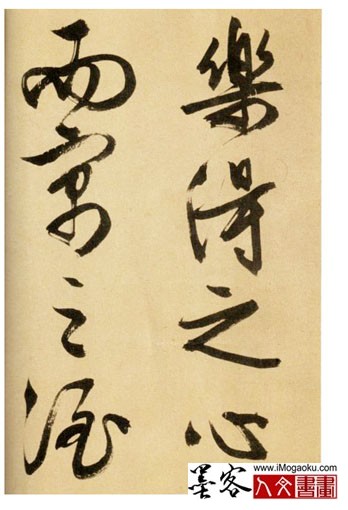 樂得之心
而寓之酒
墨客 www.iMogaoku.com
人文書畫